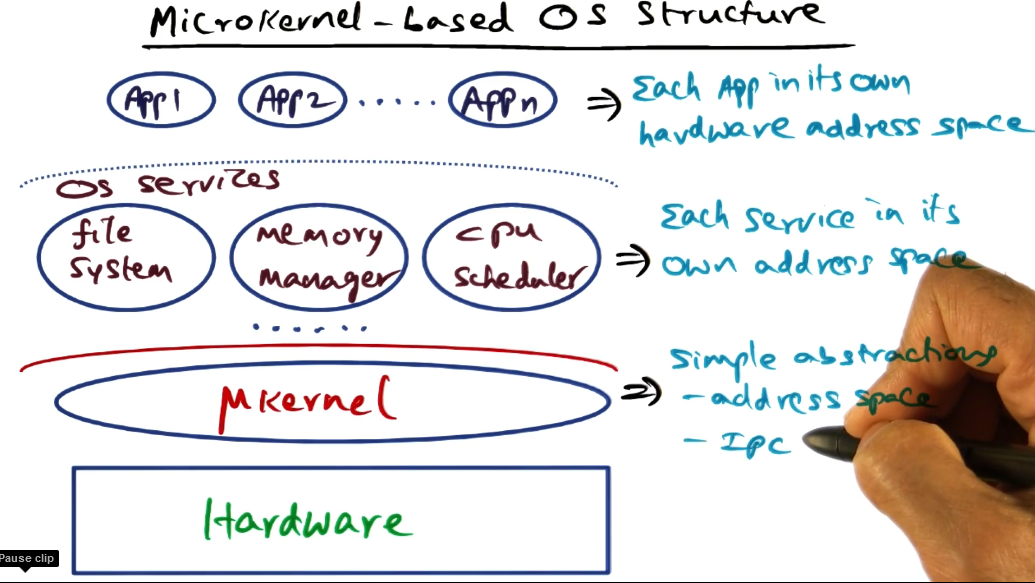 Microkernel-based OS structure
App1 App2 ...... Appn ⇒ Each App in its own
hardware address space
OS services
file
system
memory
manager
cpu
scheduler
⇒ Each service in its
own address space
......
μkernel
⇒ Simple abstractions
- address space
- IPC
Hardware
Pause clip